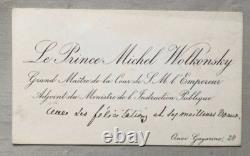 Le Prince Michel Wolkonsky
Grand Maître de la Cour de S. M. l'Empereur
Adjoint du Ministre de l'Instruction Publique
avec ses félicitations et ses meilleurs voeux.
Quai Gagarine, 20
© ebay